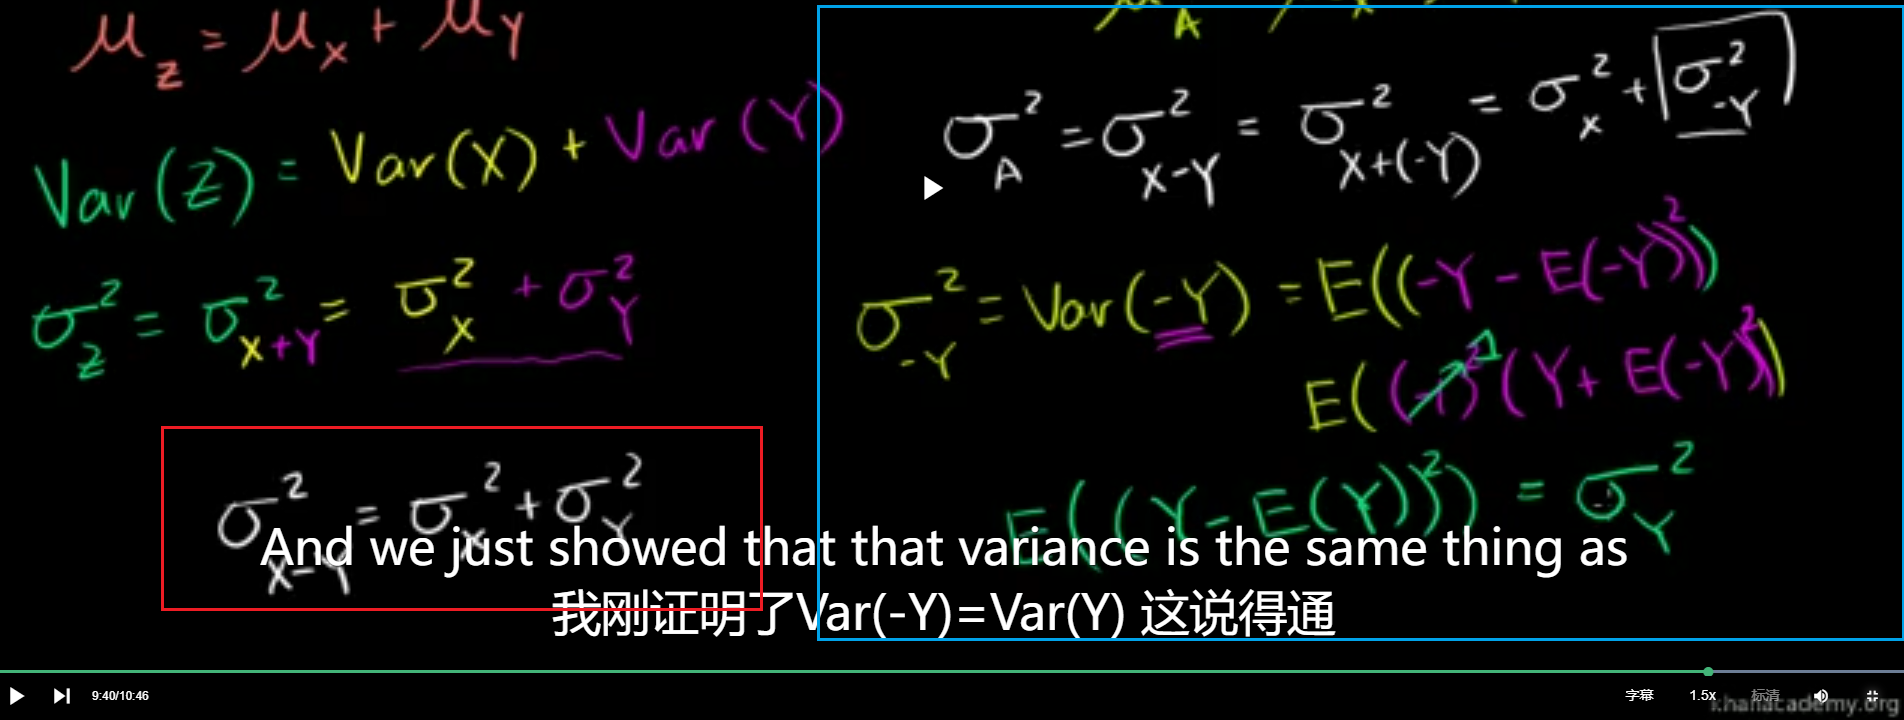 μ_Z = μ_X + μ_Y
Var(Z) = Var(X) + Var(Y)
σ²_Z = σ²_{X+Y} = σ²_X + σ²_Y
σ²_{X-Y} = σ²_X + σ²_Y
σ²_A = σ²_{X-Y} = σ²_{X+(-Y)} = σ²_X + σ²_{-Y}
σ²_{-Y} = Var(-Y) = E((-Y - E(-Y))²)
E((-1)²(Y + E(-Y))²)
E((Y - E(Y))²) = σ²_Y
And we just showed that that variance is the same thing as
我刚证明了Var(-Y)=Var(Y) 这说得通
9:40/10:46
字幕
1.5x
标清
khanacademy.org